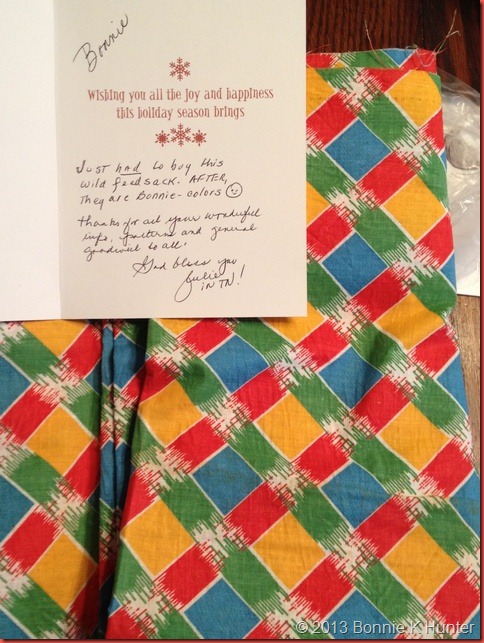 Bonnie
Wishing you all the joy and happiness
this holiday season brings
JUST HAD to buy this
wild feedsack. AFTER,
They are Bonnie-colors
Thanks for all your wonderful
info, patterns and general
goodwill to all.
God bless you
Julie
in TN!
© 2013 Bonnie K Hunter